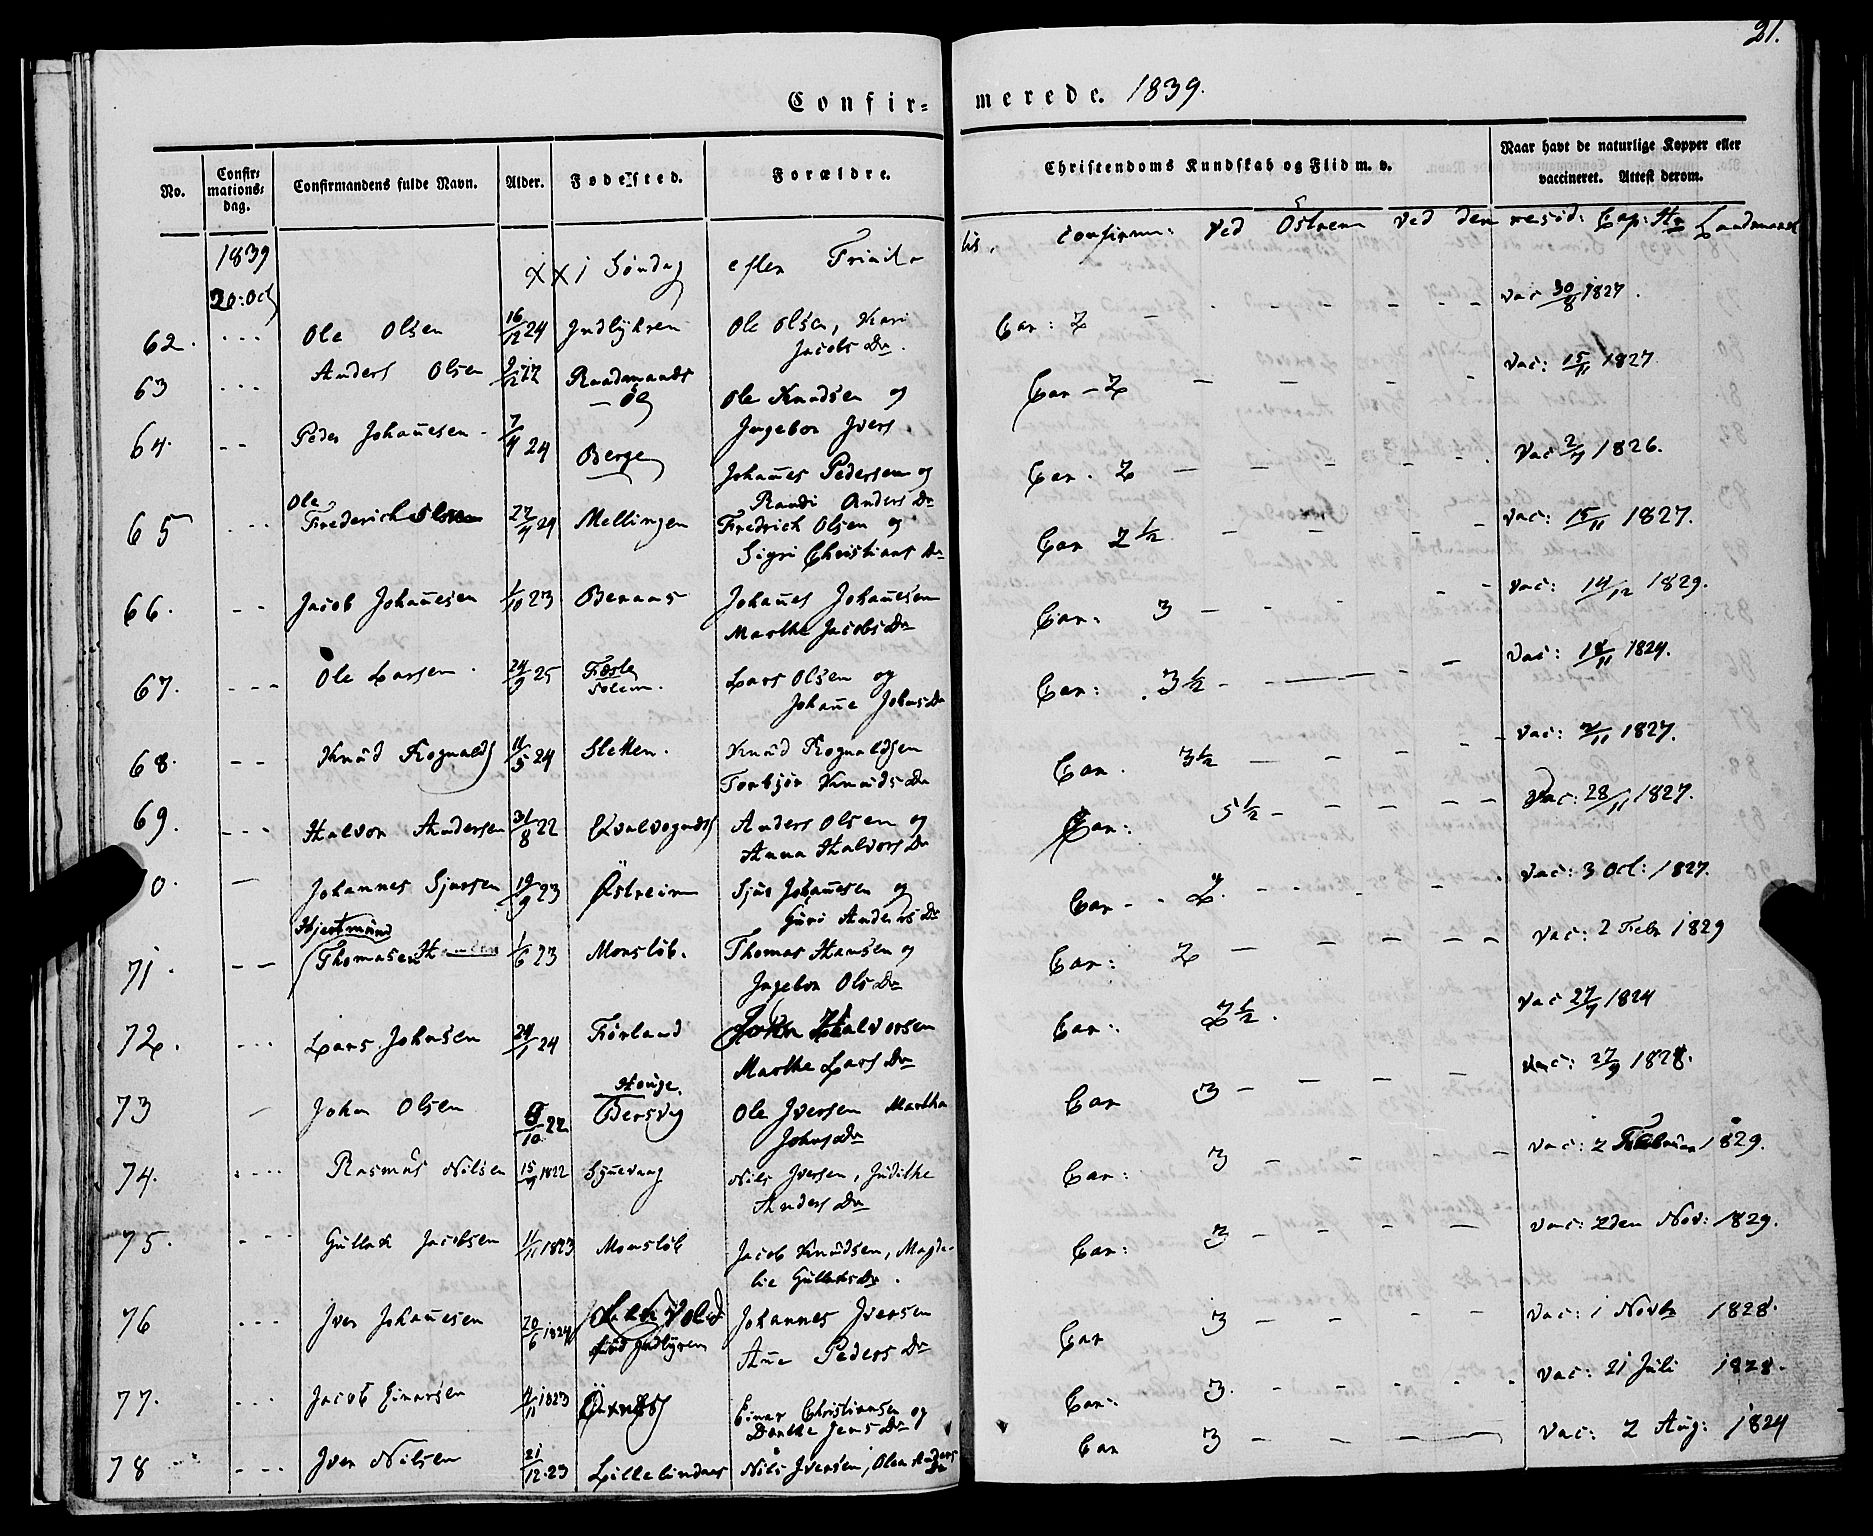 21.
Confir= merede. 1839.
No. Confir= mations= dag. Confirmandens fulde Navn. Alder. Fødested. Forældre. Christendoms Kundskab og Flid m. v. Naar havt de naturlige Kopper eller vaccineret. Attest derom.
1839
20: Oct
XXI Søndag efter Trinit=
tis. confirm: ved Østrem ved den resid: Cap: Hr Landmark
62. Ole Olsen 16/12 24 Indlyhren Ole Olsen, Kari Car: 2 vac 30/8 1827.
Jacobs Dr.
63 Anders Olsen Raadmands Ole Knudsen og Car - 2 vac: 15/11 1827.
Øe Ingebor Ivers
64. Peder Johannesen 24 Berge Johannes Pedersen og Car. 2 vac 1826.
Randi Anders Dr
65 Ole Frederich 24 Mellingen Fredrich Olsen og Car 2½ vac: 15/11 1827.
Sigri Christians Dr
66. Jacob Johannesen 1/10 23 Johannes Johannesen Car: 3 vac: 14/12 1829.
Marthe Jacobs Dr
67. Ole Larsen 24/9 25 Solem. Lars Olsen og Car: 3½ vac: 18/11 1824.
Johanne Johns Dr
68. Knud Rognalds 11/5 24 Sletten. Knud Rognaldsen Car. 3½ vac: 1827.
Torbjør Knuds Dr
69. Halvor Andersen 31/8 22 Qvalvognds Anders Olsen og Car: 5½ Vac: 28/11 1827.
Anna Halvors Dr
0. Johannes Sjursen 19/9 23 Østreim Sjur Johannesen og Car - 2. vac: 3 Oct: 1827.
Guri Anders Dr
71. Hjertmund Thomasen 1/6 23 Monsløb. Thomas Hansen og Car: 2 vac: 2 Febr 1829
Ingebor Ols Dr
72. Lars Johnsen 24/1 24 Førland John Halvorsen Car: 2½. vac 1824
Marthe Lars Dr
73 John Olsen 22 Houge. Bersvig Ole Iversen Martha Car 3 vac: 27/9 1828.
Johns Dr
74. Rasmus Nilsen 1822 Nils Iversen, Judithe Car: 3 vac: 2 Februar 1829.
Anders Dr
75. Gullak Jacobsen 11/11 1823 Monsløb Jacob Knudsen, Magde- Car: 3 vac: 2den Nov: 1829.
lie Gullaks Dr.
76 Iver Johannesen 20/6 1824 Indlyren Johannes Iversen Car 3 vac: 1 Novbr 1828.
Ane Peders Dr
77. Jacob Einarsen 1823 Einar Christiansen og Car: 3. vac: 21 Juli 1828.
Dorthe Jens Dr
78 Iver Nilsen 21/12. 23 Lillelindaas Nils Iversen, Olea Anders Dr Car 3 vac: 2 Aug: 1824